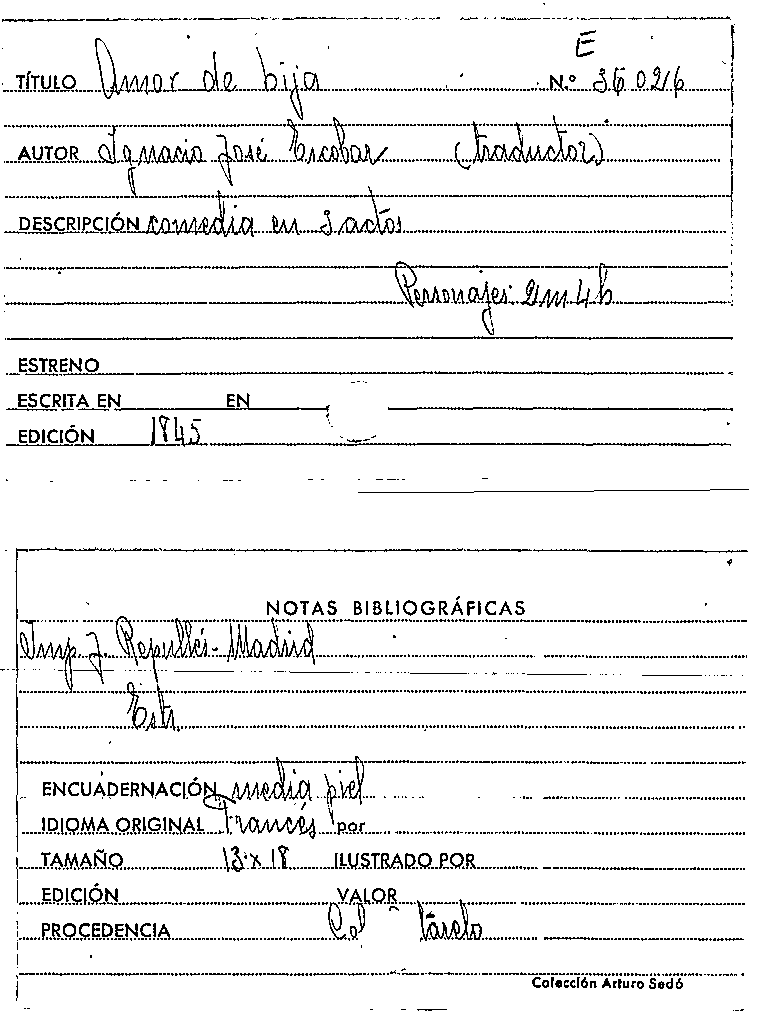 E
TÍTULO Amor de hija N.º 36 0216
AUTOR Ignacio José Escobar (traductor)
DESCRIPCIÓN comedia en 3 actos
Personajes: 2m 4h
ESTRENO
ESCRITA EN EN
EDICIÓN 1845
NOTAS BIBLIOGRÁFICAS
Imp. J. Repullés - Madrid
Estr.
ENCUADERNACIÓN media piel
IDIOMA ORIGINAL Francés por
TAMAÑO 13 x 18 ILUSTRADO POR
EDICIÓN VALOR
PROCEDENCIA Col
Colección Arturo Sedó